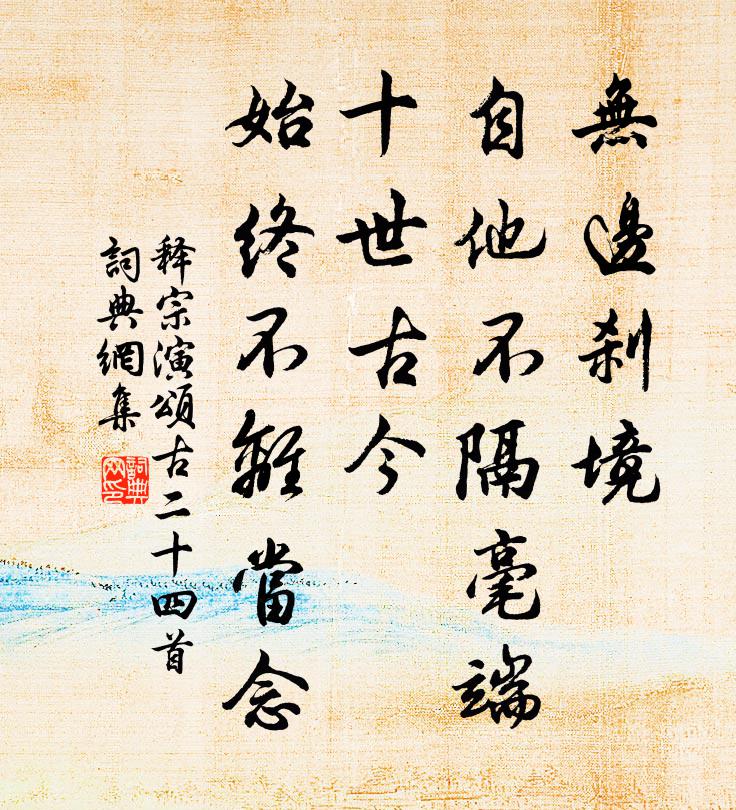 無邊刹境
自他不隔毫端
十世古今
始終不離當念
释宗演頌古二十四首
詞典網集
詞典
网印